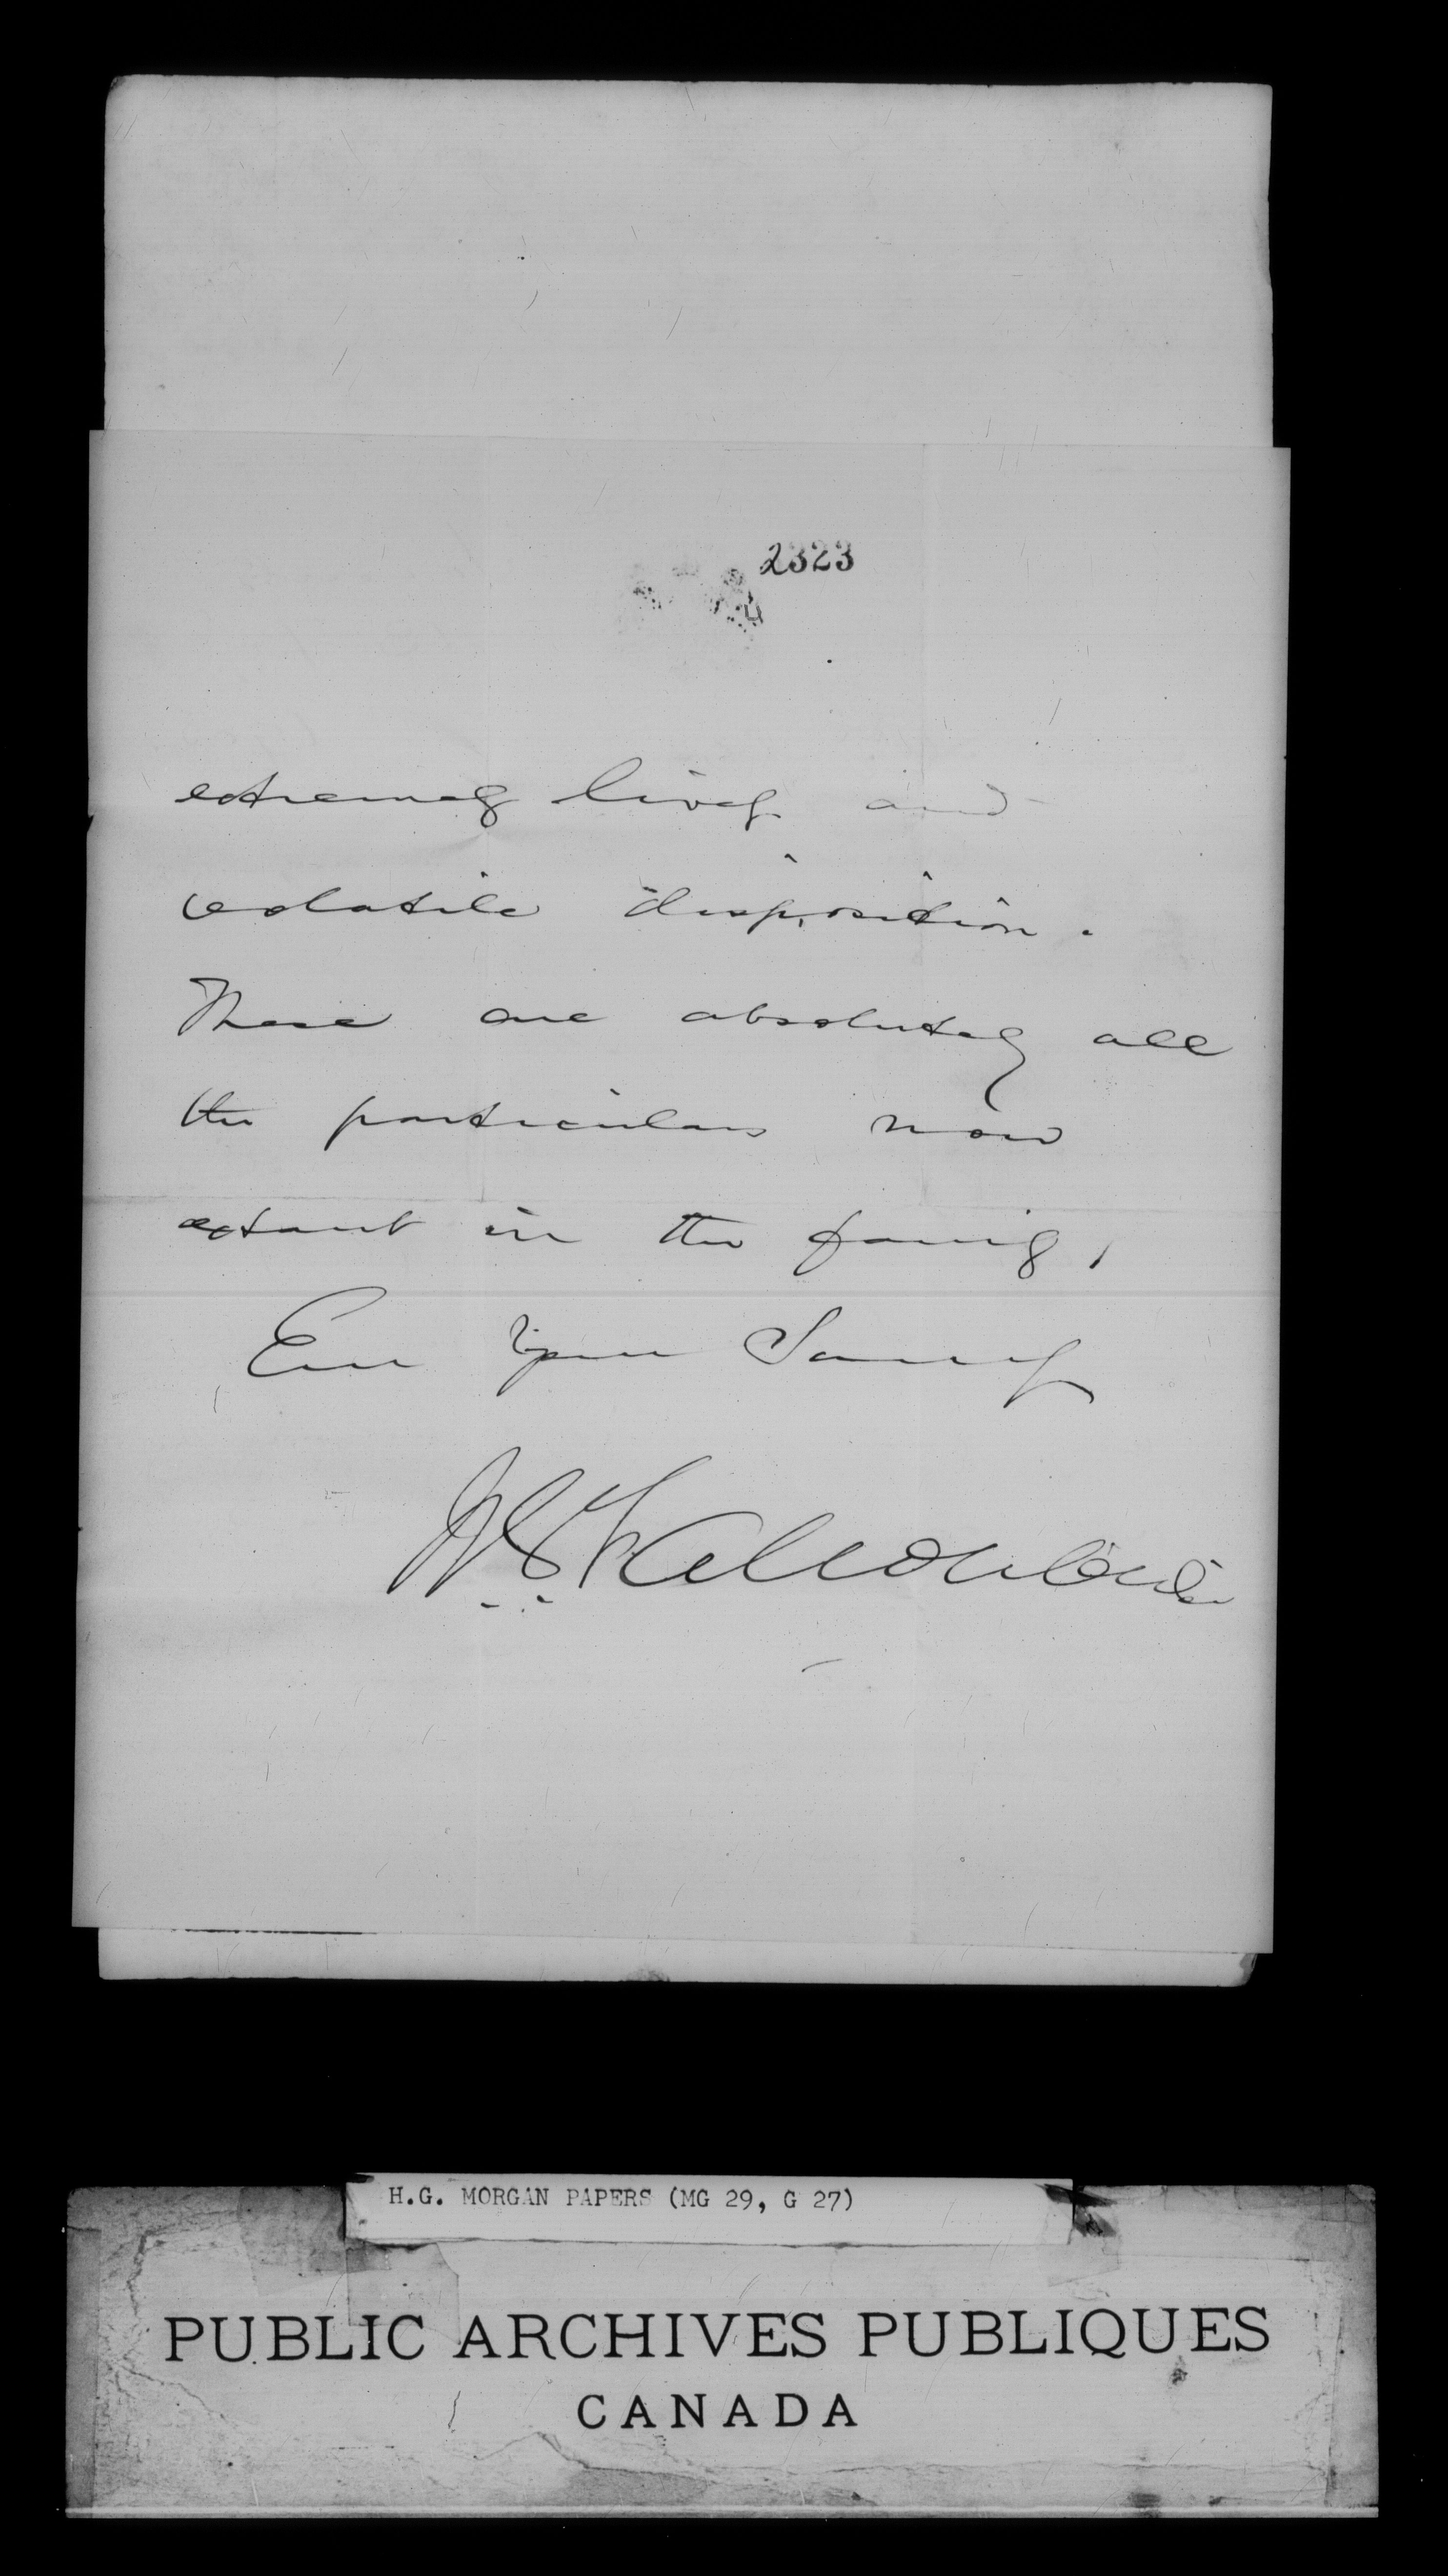 2323
extremely lively and
volatile disposition.
These are absolutely all
the particulars now
extant in the family,
Ever Yours Sincerely
H.G. MORGAN PAPERS (MG 29, G 27)
PUBLIC ARCHIVES PUBLIQUES
CANADA